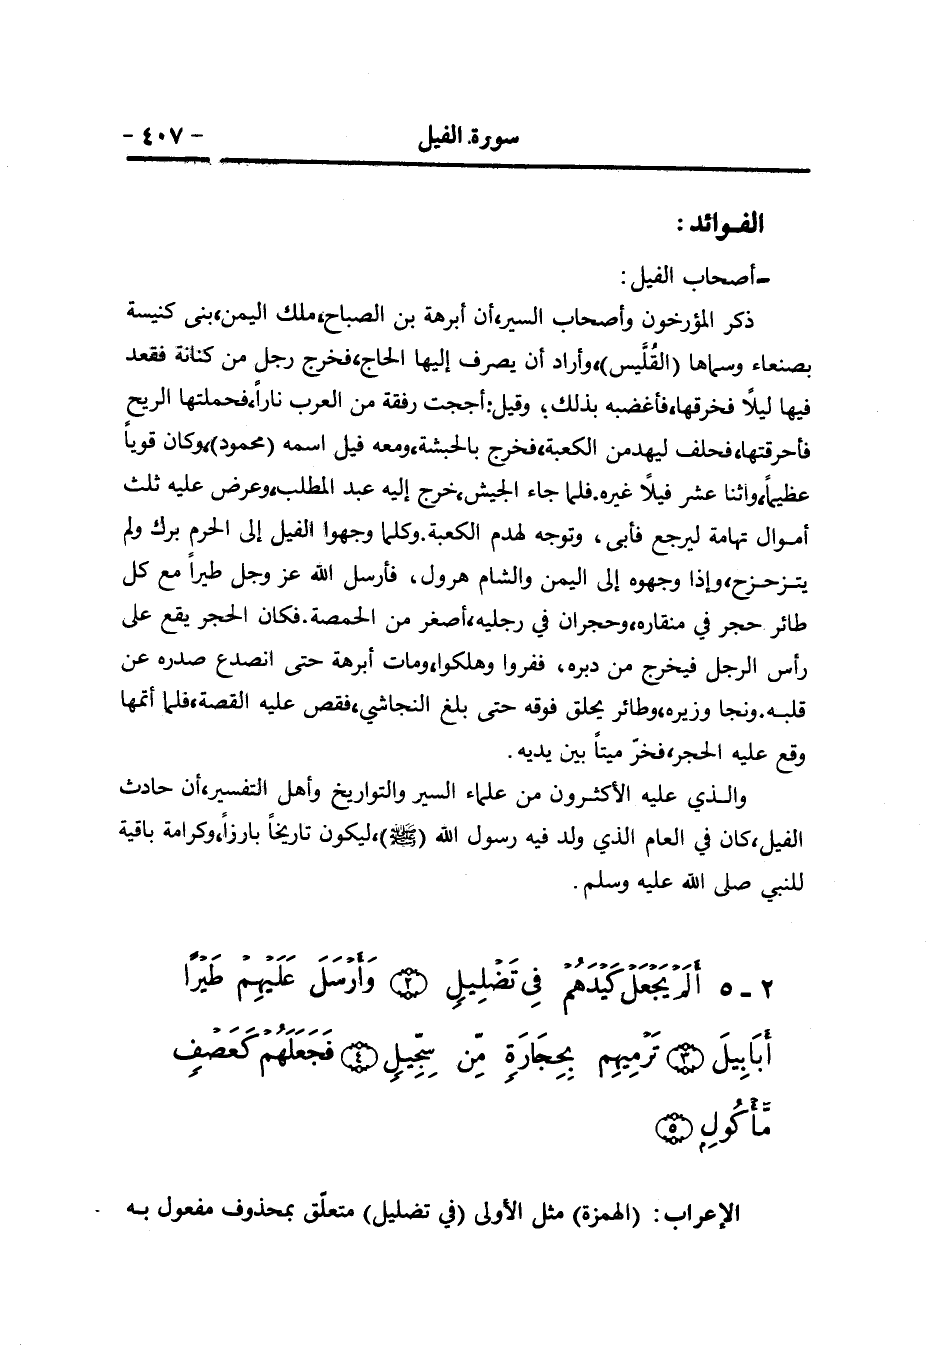 سورة الفيل - ٤٠٧ -
الفـوائد :
-أصحاب الفيل :
ذكر المؤرخون وأصحاب السير،أن أبرهة بن الصباح،ملك اليمن،بنى كنيسة
بصنعاء وسماها (القُلَّيس)،وأراد أن يصرف إليها الحاج،فخرج رجل من كنانة فقعد
فيها ليلًا فخرقها،فأغضبه بذلك؛ وقيل:أججت رفقة من العرب ناراً،فحملتها الريح
فأحرقتها،فحلف ليهدمن الكعبة،فخرج بالحبشة،ومعه فيل اسمه (محمود)،وكان قوياً
عظيماً،واثنا عشر فيلًا غيره.فلما جاء الجيش،خرج إليه عبد المطلب،وعرض عليه ثلث
أمـوال تهامة ليرجع فأبى، وتوجه لهدم الكعبة.وكلما وجهوا الفيل إلى الحرم برك ولم
يتـزحـزح،وإذا وجهوه إلى اليمن والشام هرول، فأرسل الله عز وجل طيراً مع كل
طائر حجر في منقاره،وحجران في رجليه،أصغر من الحمصة.فكان الحجر يقع على
رأس الرجل فيخرج من دبره، ففروا وهلكوا،ومات أبرهة حتى انصدع صدره عن
قلبـه.ونجا وزيره،وطائر يحلق فوقه حتى بلغ النجاشي،فقص عليه القصة،فلما أتمها
وقع عليه الحجر،فخرّ ميتاً بين يديه.
والـذي عليه الأكثـرون من علماء السير والتواريخ وأهل التفسير،أن حادث
الفيل،كان في العام الذي ولد فيه رسول الله (ﷺ)،ليكون تاريخاً بارزاً،وكرامة باقية
للنبي صلى الله عليه وسلم.
٢ - ٥ أَلَمْ يَجْعَلْ كَيْدَهُمْ فِي تَضْلِيلٍ ﴿٢﴾ وَأَرْسَلَ عَلَيْهِمْ طَيْرًا
أَبَابِيلَ ﴿٣﴾ تَرْمِيهِم بِحِجَارَةٍ مِّن سِجِّيلٍ ﴿٤﴾ فَجَعَلَهُمْ كَعَصْفٍ
مَّأْكُولٍ ﴿٥﴾
الإعراب: (الهمزة) مثل الأولى (في تضليل) متعلّق بمحذوف مفعول بـه